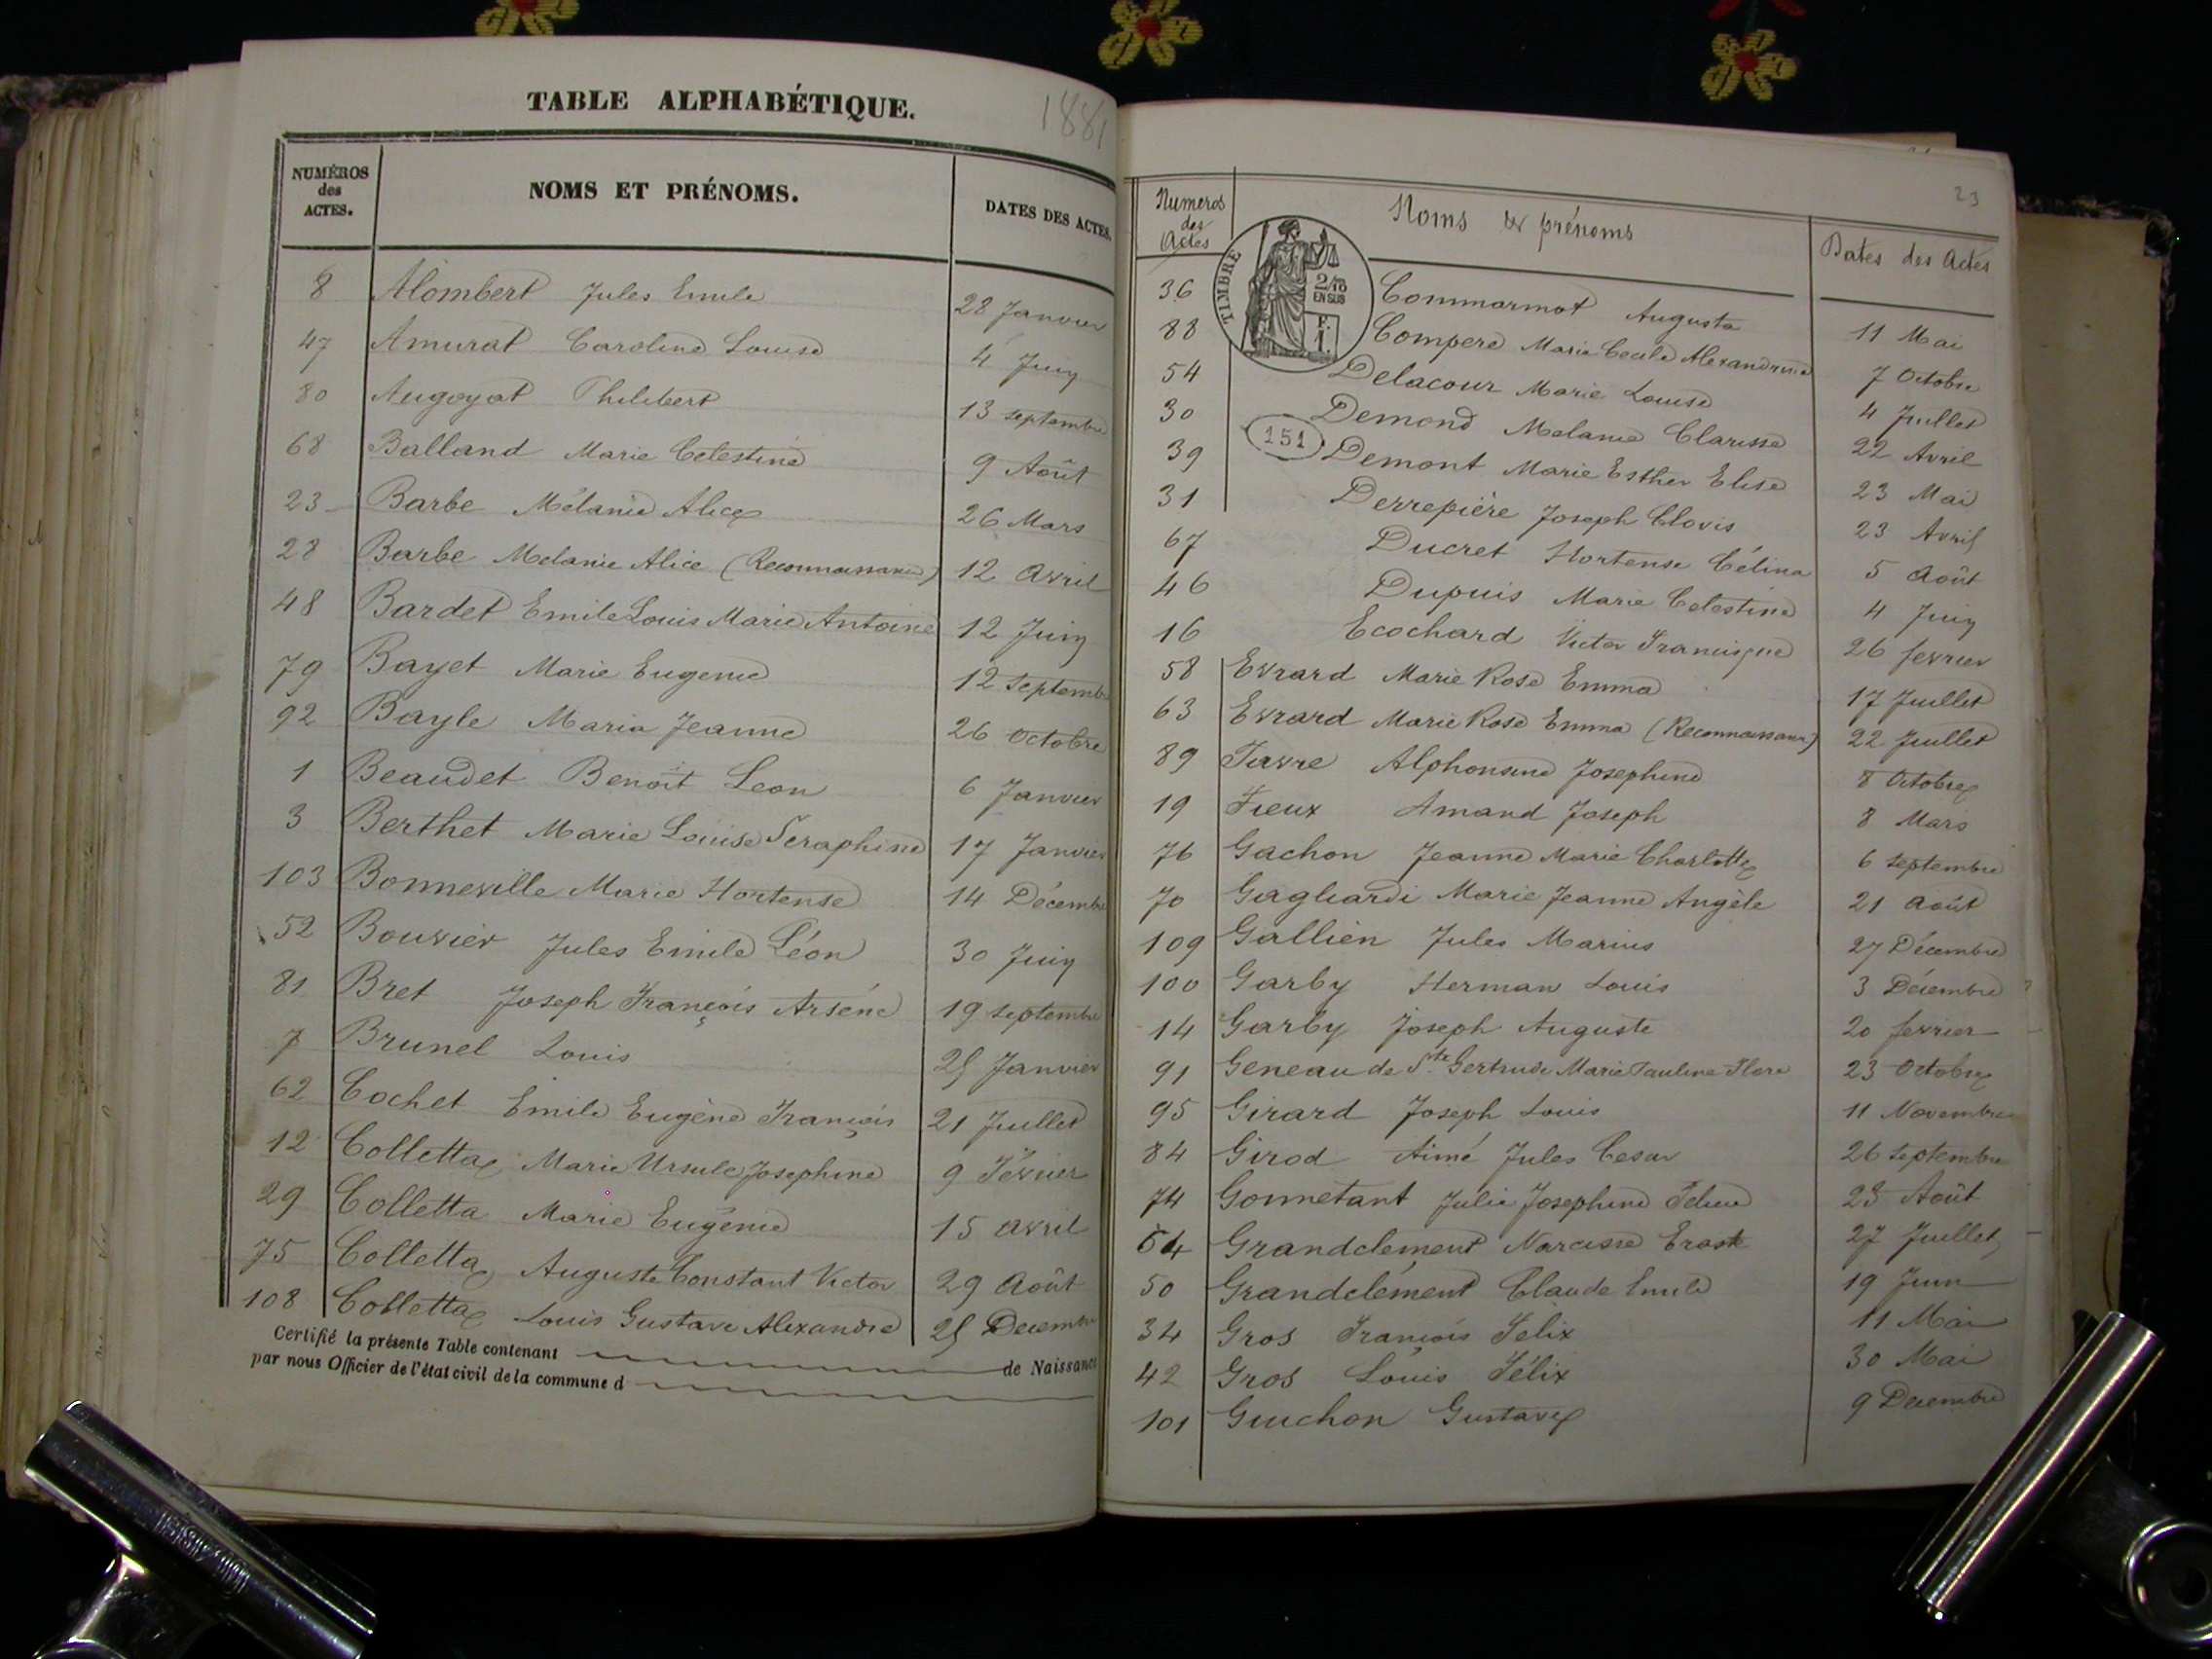 TABLE ALPHABÉTIQUE.
1881
NUMÉROS des ACTES. NOMS ET PRÉNOMS. DATES DES ACTES.
8 Alombert Jules Emile 28 Janvier
47 Amurat Caroline Louise 4 Juin
80 Augoyat Philibert 13 septembre
68 Balland Marie Celestine 9 Août
23 Barbe Mélanie Alice 26 Mars
28 Barbe Melanie Alice (Reconnaissance) 12 avril
48 Bardet Emile Louis Marie Antoine 12 Juin
79 Bayet Marie Eugenie 12 septembre
92 Bayle Maria Jeanne 26 octobre
1 Beaudet Benoît Leon 6 Janvier
3 Berthet Marie Louise Seraphine 17 Janvier
103 Bonneville Marie Hortense 14 Décembre
52 Bouvier Jules Emile Léon 30 Juin
81 Bret Joseph François Arsène 19 septembre
7 Brunel Louis 25 Janvier
62 Cochet Emile Eugène François 21 Juillet
12 Colletta Marie Ursule Josephine 9 Février
29 Colletta Marie Eugénie 15 avril
75 Colletta Auguste Constant Victor 29 Août
108 Colletta Louis Gustave Alexandre 25 Decembre
Certifié la présente Table contenant de Naissance
par nous Officier de l'état civil de la commune d
23
Numeros des Actes Noms & prénoms Dates des Actes
TIMBRE
2/10
EN SUS
F.
1.
151
36 Commarmot Augusta 11 Mai
88 Compere Marie Cecile Alexandrine 7 Octobre
54 Delacour Marie Louise 4 Juillet
30 Demond Melanie Clarisse 22 Avril
39 Demont Marie Esther Elise 23 Mai
31 Derrepière Joseph Clovis 23 Avril
67 Ducret Hortense Célina 5 Août
46 Dupuis Marie Celestine 4 Juin
16 Ecochard Victor Francisque 26 fevrier
58 Evrard Marie Rose Emma 17 Juillet
63 Evrard Marie Rose Emma (Reconnaissance) 22 Juillet
89 Favre Alphonsine Josephine 8 Octobre
19 Fieux Amand Joseph 8 Mars
76 Gachon Jeanne Marie Charlotte 6 septembre
70 Gagliardi Marie Jeanne Angèle 21 août
109 Gallien Jules Marius 27 Décembre
100 Garby Herman Louis 3 Décembre
14 Garby Joseph Auguste 20 fevrier
91 Geneau de Ste Gertrude Marie Pauline Flore 23 octobre
95 Girard Joseph Louis 11 Novembre
84 Girod Aimé Jules Cesar 26 septembre
74 Gonnetant Julie Josephine 28 Août
64 Grandclement Narcisse Eraste 27 Juillet
50 Grandclément Claude Emile 19 Juin
34 Gros François Félix 11 Mai
42 Gros Louis Félix 30 Mai
101 Guichon Gustave 9 Decembre